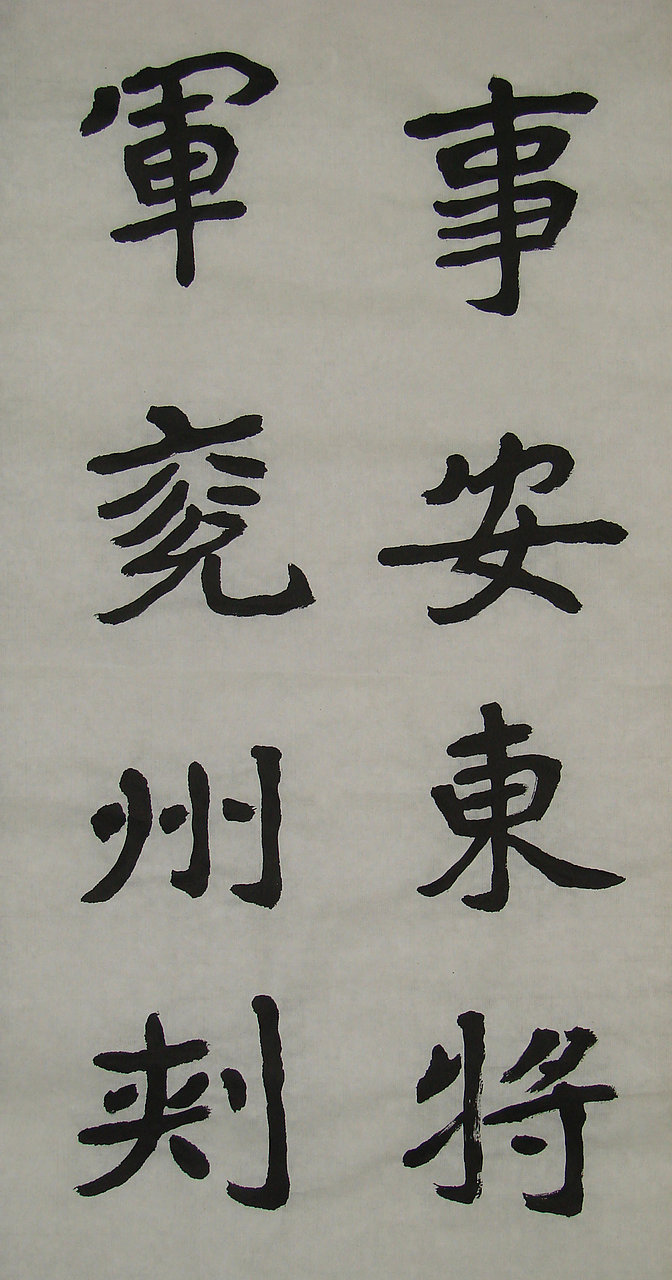 事安東將
軍兗州刾